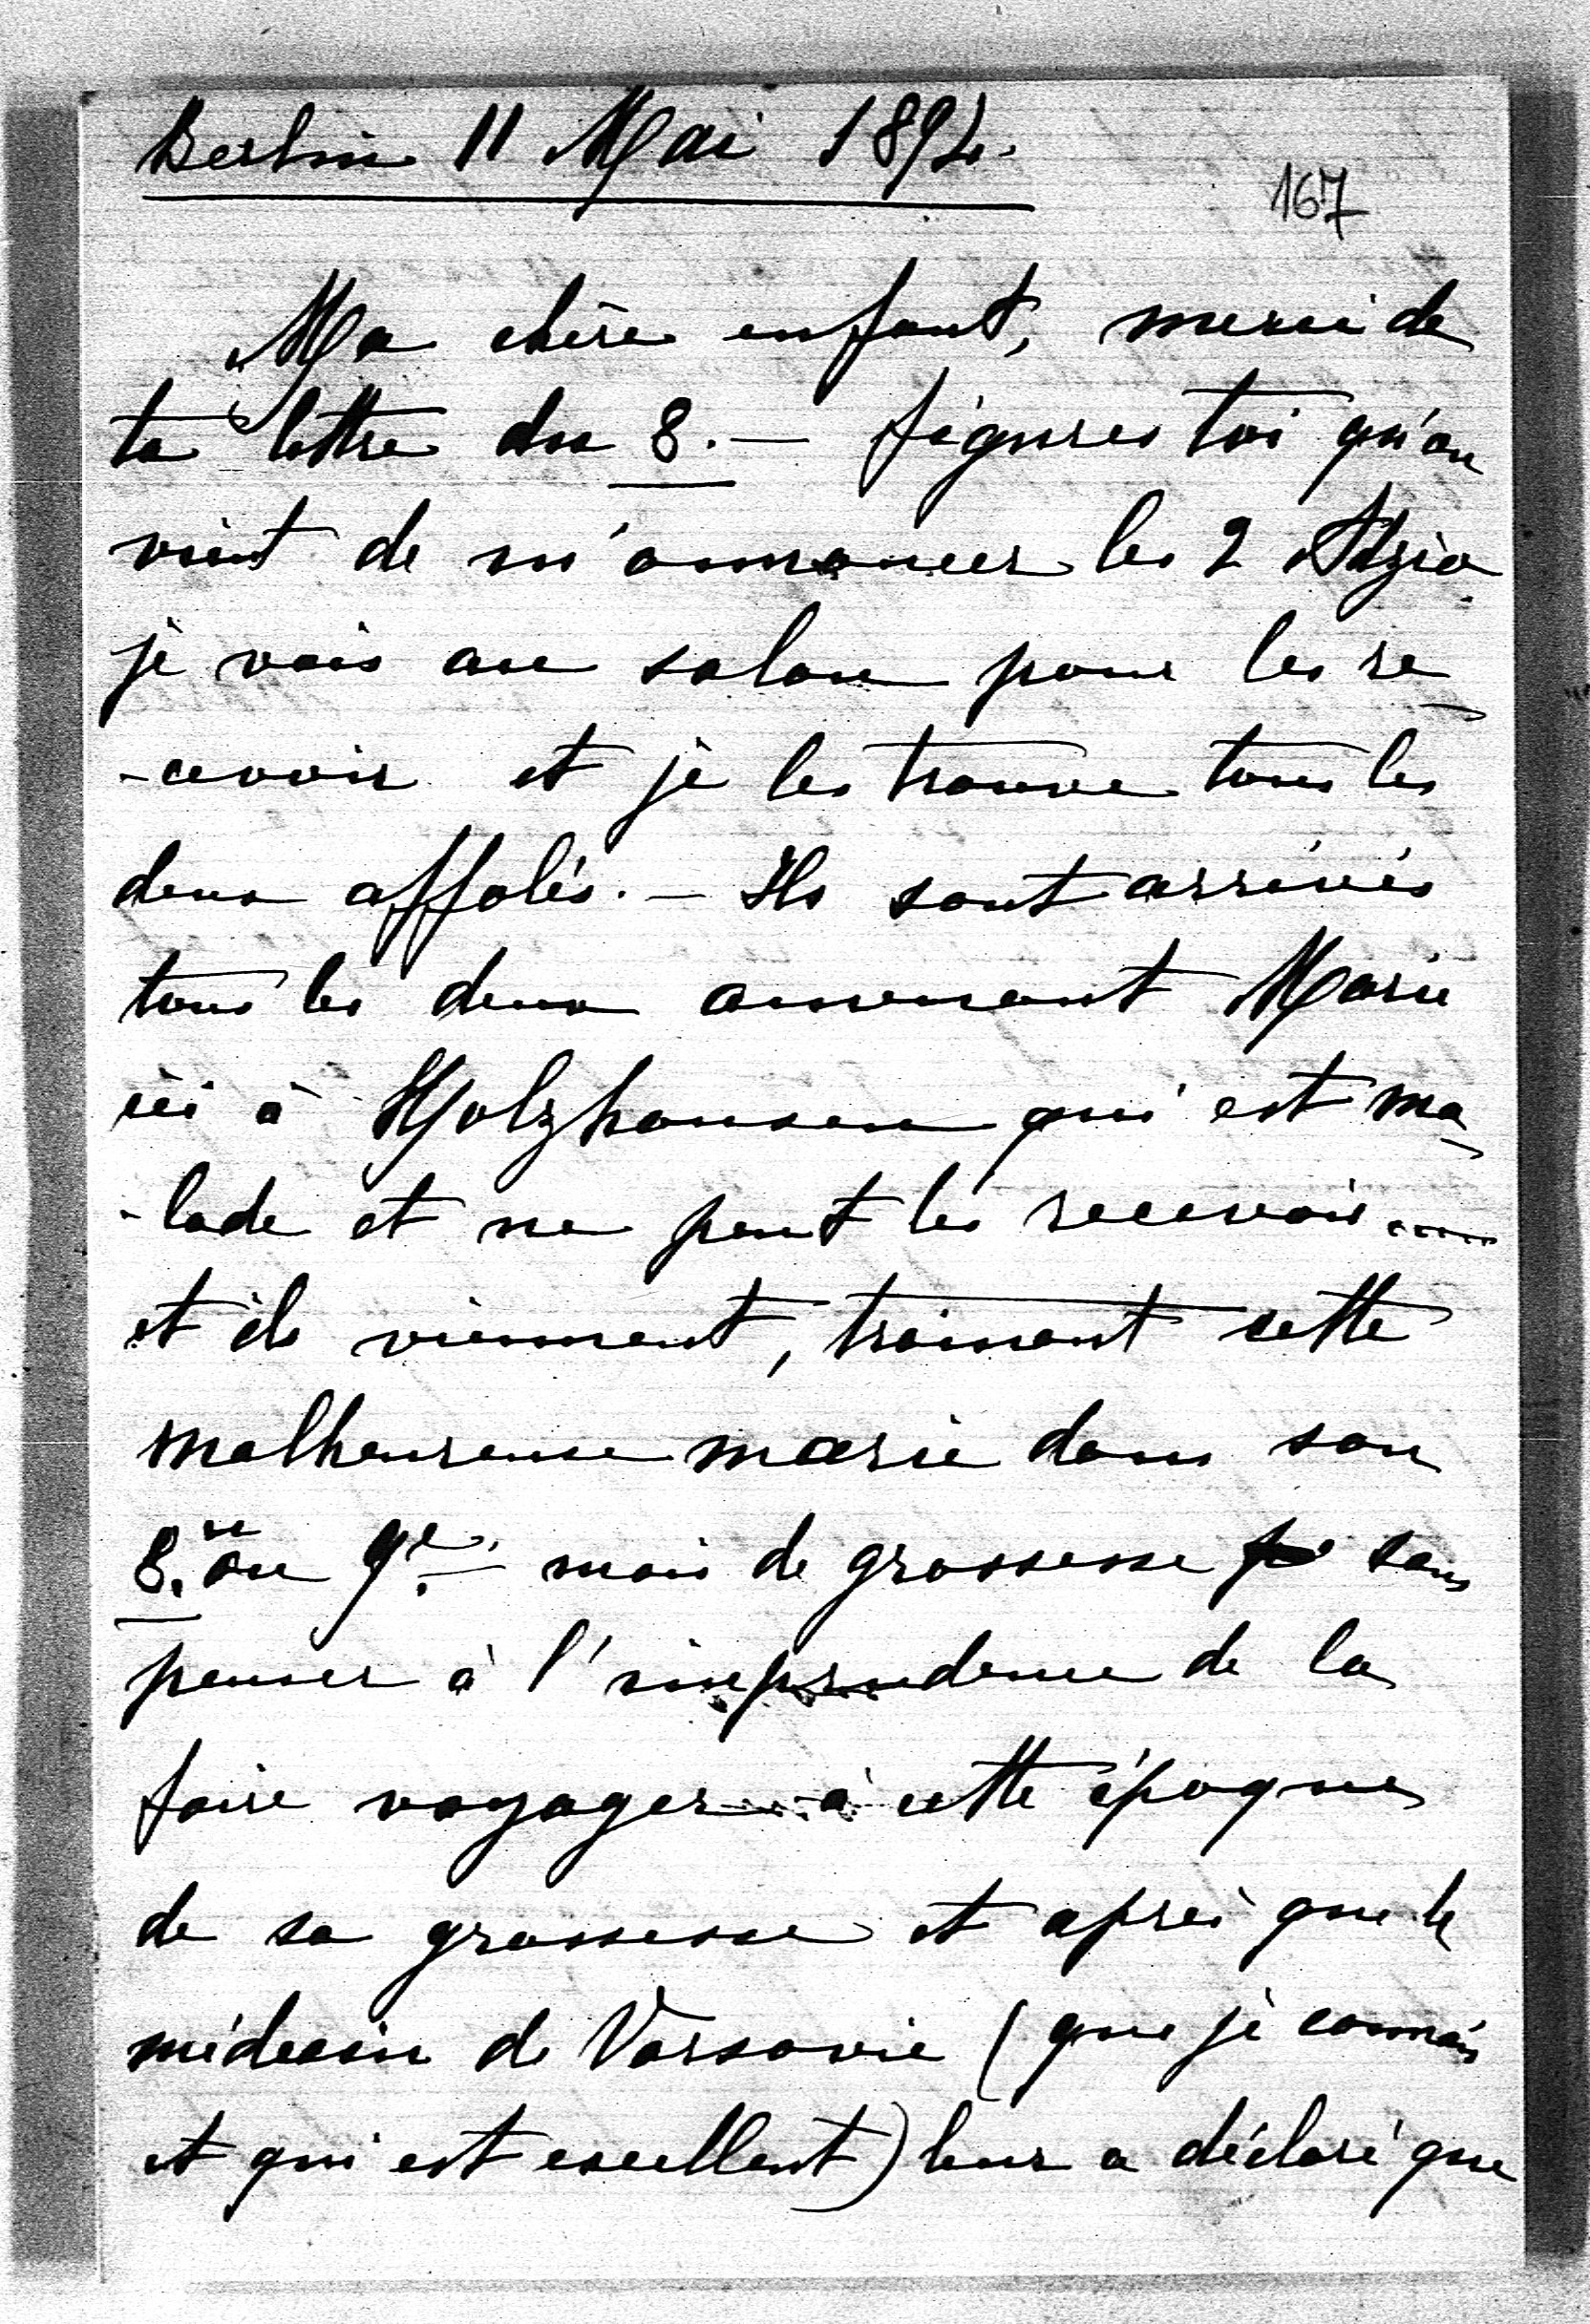 Berlin 11 Mai 1892.
167
Ma chère enfant, merci de
ta lettre du 8. — figures toi qu'on
vient de m'annoncer les 2 Adzio
je vais au salon pour les re
-cevoir et je les trouve tous les
deux affolés. — Ils sont arrivés
tous les deux amenant Marie
ici à Holzhausen qui est ma
-lade et ne peut les recevoir .....
et ils viennent, trainant cette
malheureuse marie dans son
8. ou 9e. mois de grossesse sans
penser à l'imprudence de la
faire voyager à cette époque
de sa grossesse et après que le
médecin de Varsovie (que je connais
et qui est excellent) leur a déclaré que